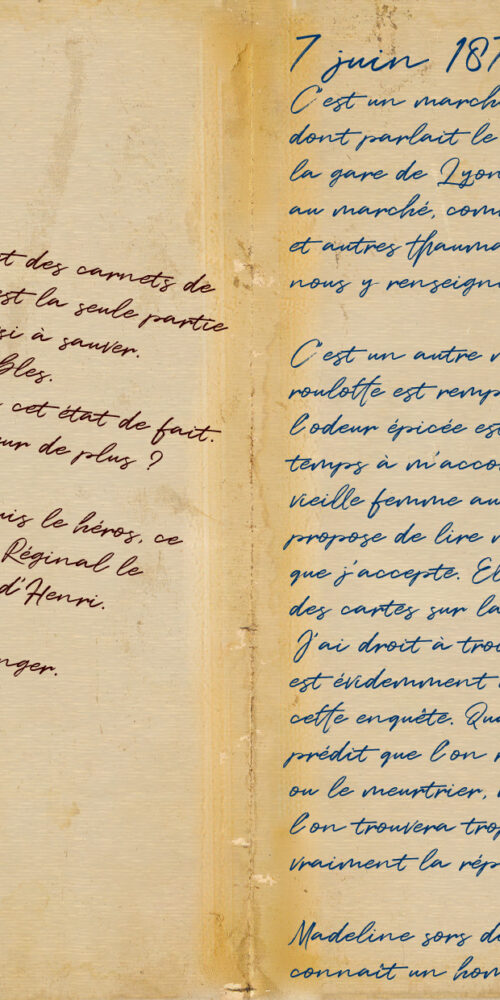 t des carnets de
est la seule partie
si à sauver.
bles.
cet état de fait.
ur de plus ?
uis le héros, ce
Réginal le
d'Henri.
nger.
7 juin 187
C'est un march
dont parlait le
la gare de Lyon
au marché, com
et autres thauma
nous y renseign
C'est un autre
roulotte est remp
l'odeur épicée es
temps à m'acco
vieille femme au
propose de lire
que j'accepte. El
des cartes sur la
J'ai droit à troi
est évidemment
cette enquête. Qu
prédit que l'on
ou le meurtrier,
l'on trouvera trop
vraiment la rép
Madeline sors d
connait un hom